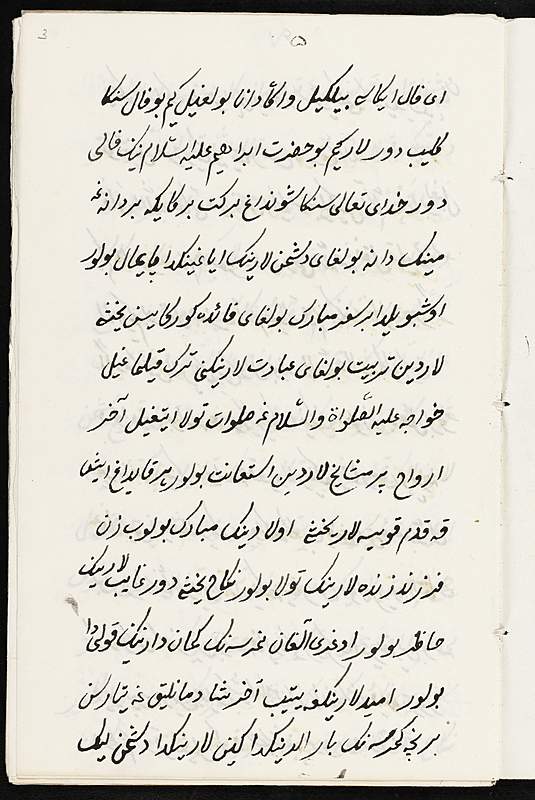 3
ای فال ایکاسی بیلگیل و اگاه دانا بولغیل کیم بو فال سنکا
کلیب دور لار کیم بو حضرت ابراهیم علیه السّلام نینک فالی
دور خدای تعالی سنکا شونداغ برکت برکای که بر دانه غه
مینک دانه بولغای دشمن لارینک ایاغینکدا پایمال بولور
اوشبو یلدا بر سفر مبارک بولغای فائده کورکاسن یخشی
لاردین تربیت بولغای عبادت لارینکنی ترک قیلماغیل
خواجه علیه الصّلواة والسّلام غه صلوات تولا ایتغیل آخر
ارواح پیر مشایخ لاردین استعانت بولور هر قایداغ ایش
قه قدم قویسه لار یخشی اولادینک مبارک بولوب زن
فرزند زنده لارینک تولا بولور نکاح یخشی دور غایب لارینک
حاظر بولور اوغری آلغان نمرسه نک کمان دارنینک قولی دا
بولور امید لارینکغه ییتیب آخر شادمانلیق غه یتارسن
بر نچه نمرسه نک بار الدینکدا کینی لارینکدا دشمن لیک